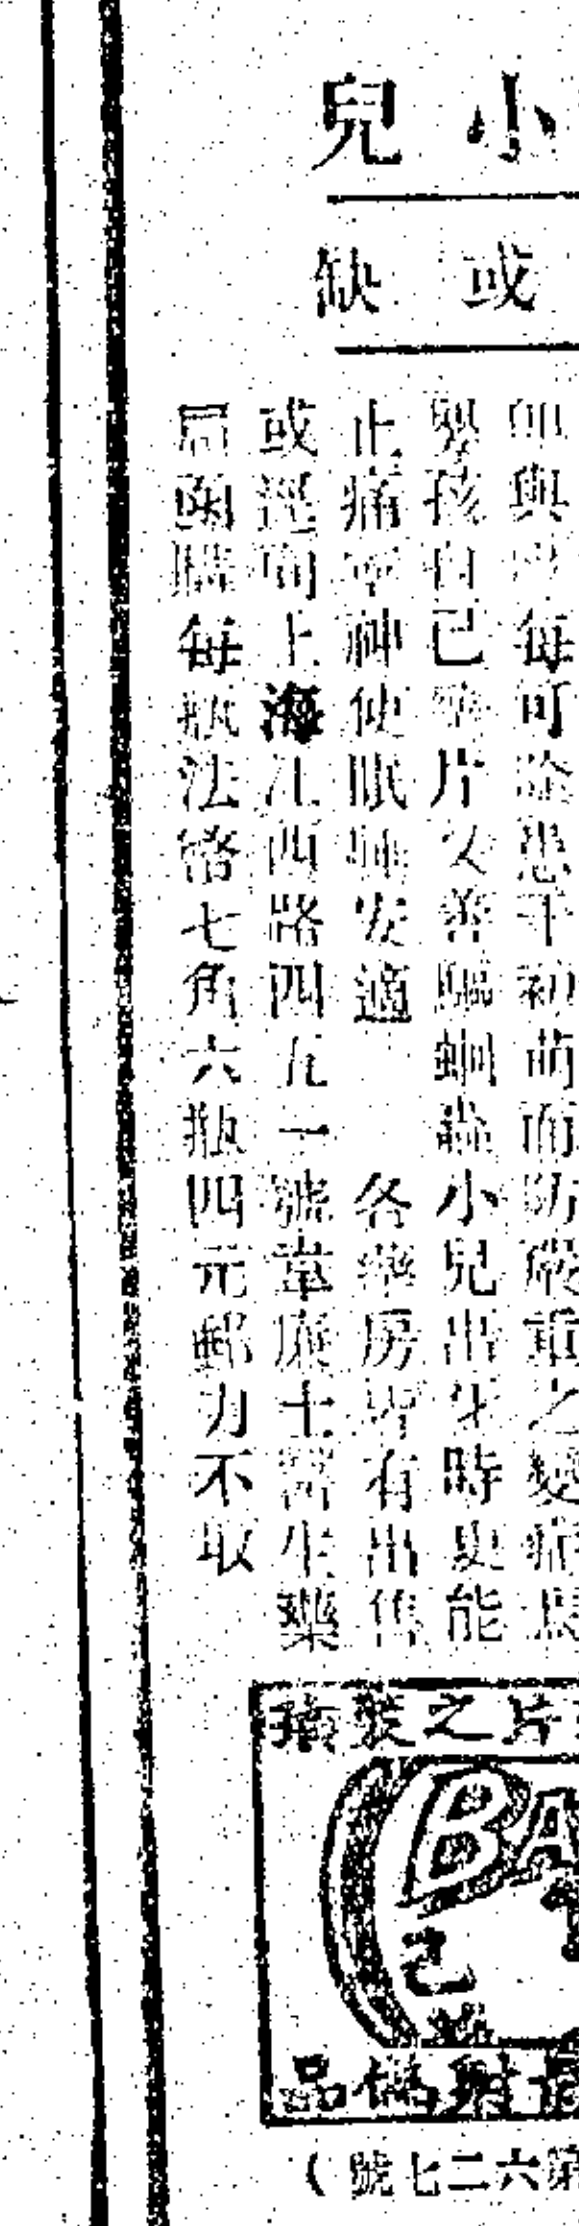 小兒
或缺
卽與以每可除患于初萌而防嚴重之變症馬
嬰孩自己藥片又善驅蛔蟲小兒出牙時更能
止痛寧神使眠睡安適　各藥房皆有出售
或逕向上海江西路四五一號韋廉士醫生藥
局函購每瓶法幣七角六瓶四元郵力不取
片之裝璜
BA
己
品偽射
第六二七號（